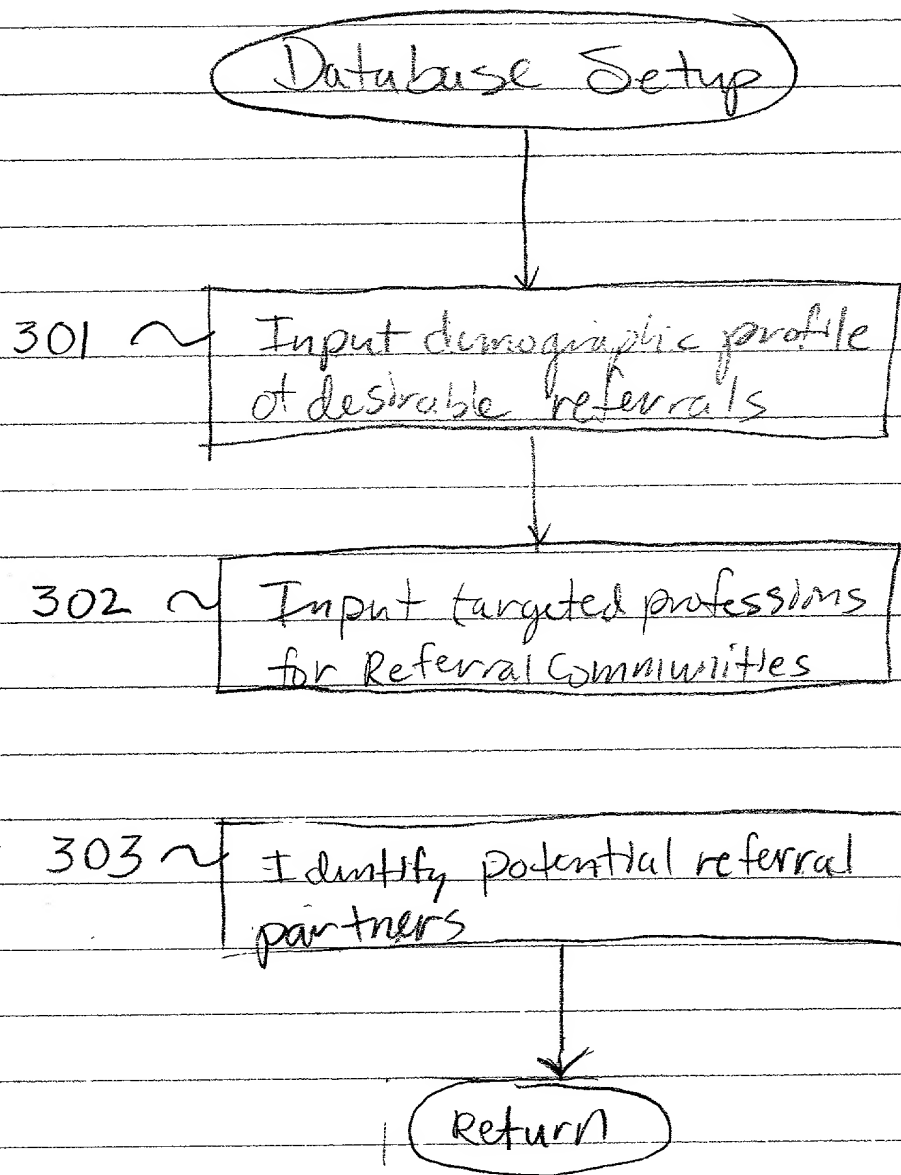 Database Setup
301 Input demographic profile
of desirable referrals
302 Input targeted professions
for Referral Communities
303 Identify potential referral
partners
Return